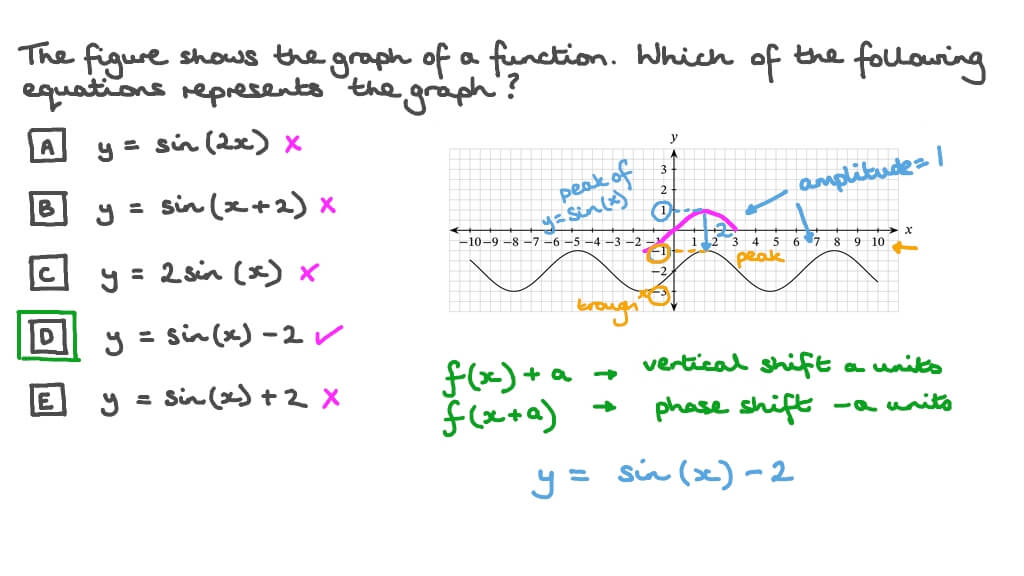 The figure shows the graph of a function. Which of the following
equations represents the graph?
A y = sin(2x) ×
B y = sin(x+2) ×
C y = 2sin(x) ×
D y = sin(x) - 2 ✓
E y = sin(x) + 2 ×
y
3
2
1
-1
-2
-3
-10 -9 -8 -7 -6 -5 -4 -3 -2 -1 1 2 3 4 5 6 7 8 9 10 x
peak of
y=sin(x)
amplitude = 1
2
peak
trough
f(x) + a → vertical shift a units
f(x+a) → phase shift -a units
y = sin(x) - 2